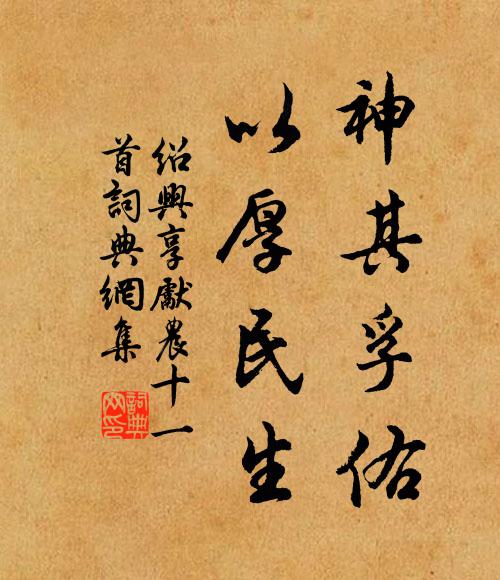 神其孚佑
以厚民生
紹興享獻農十一
首詞典網集
詞典
网印